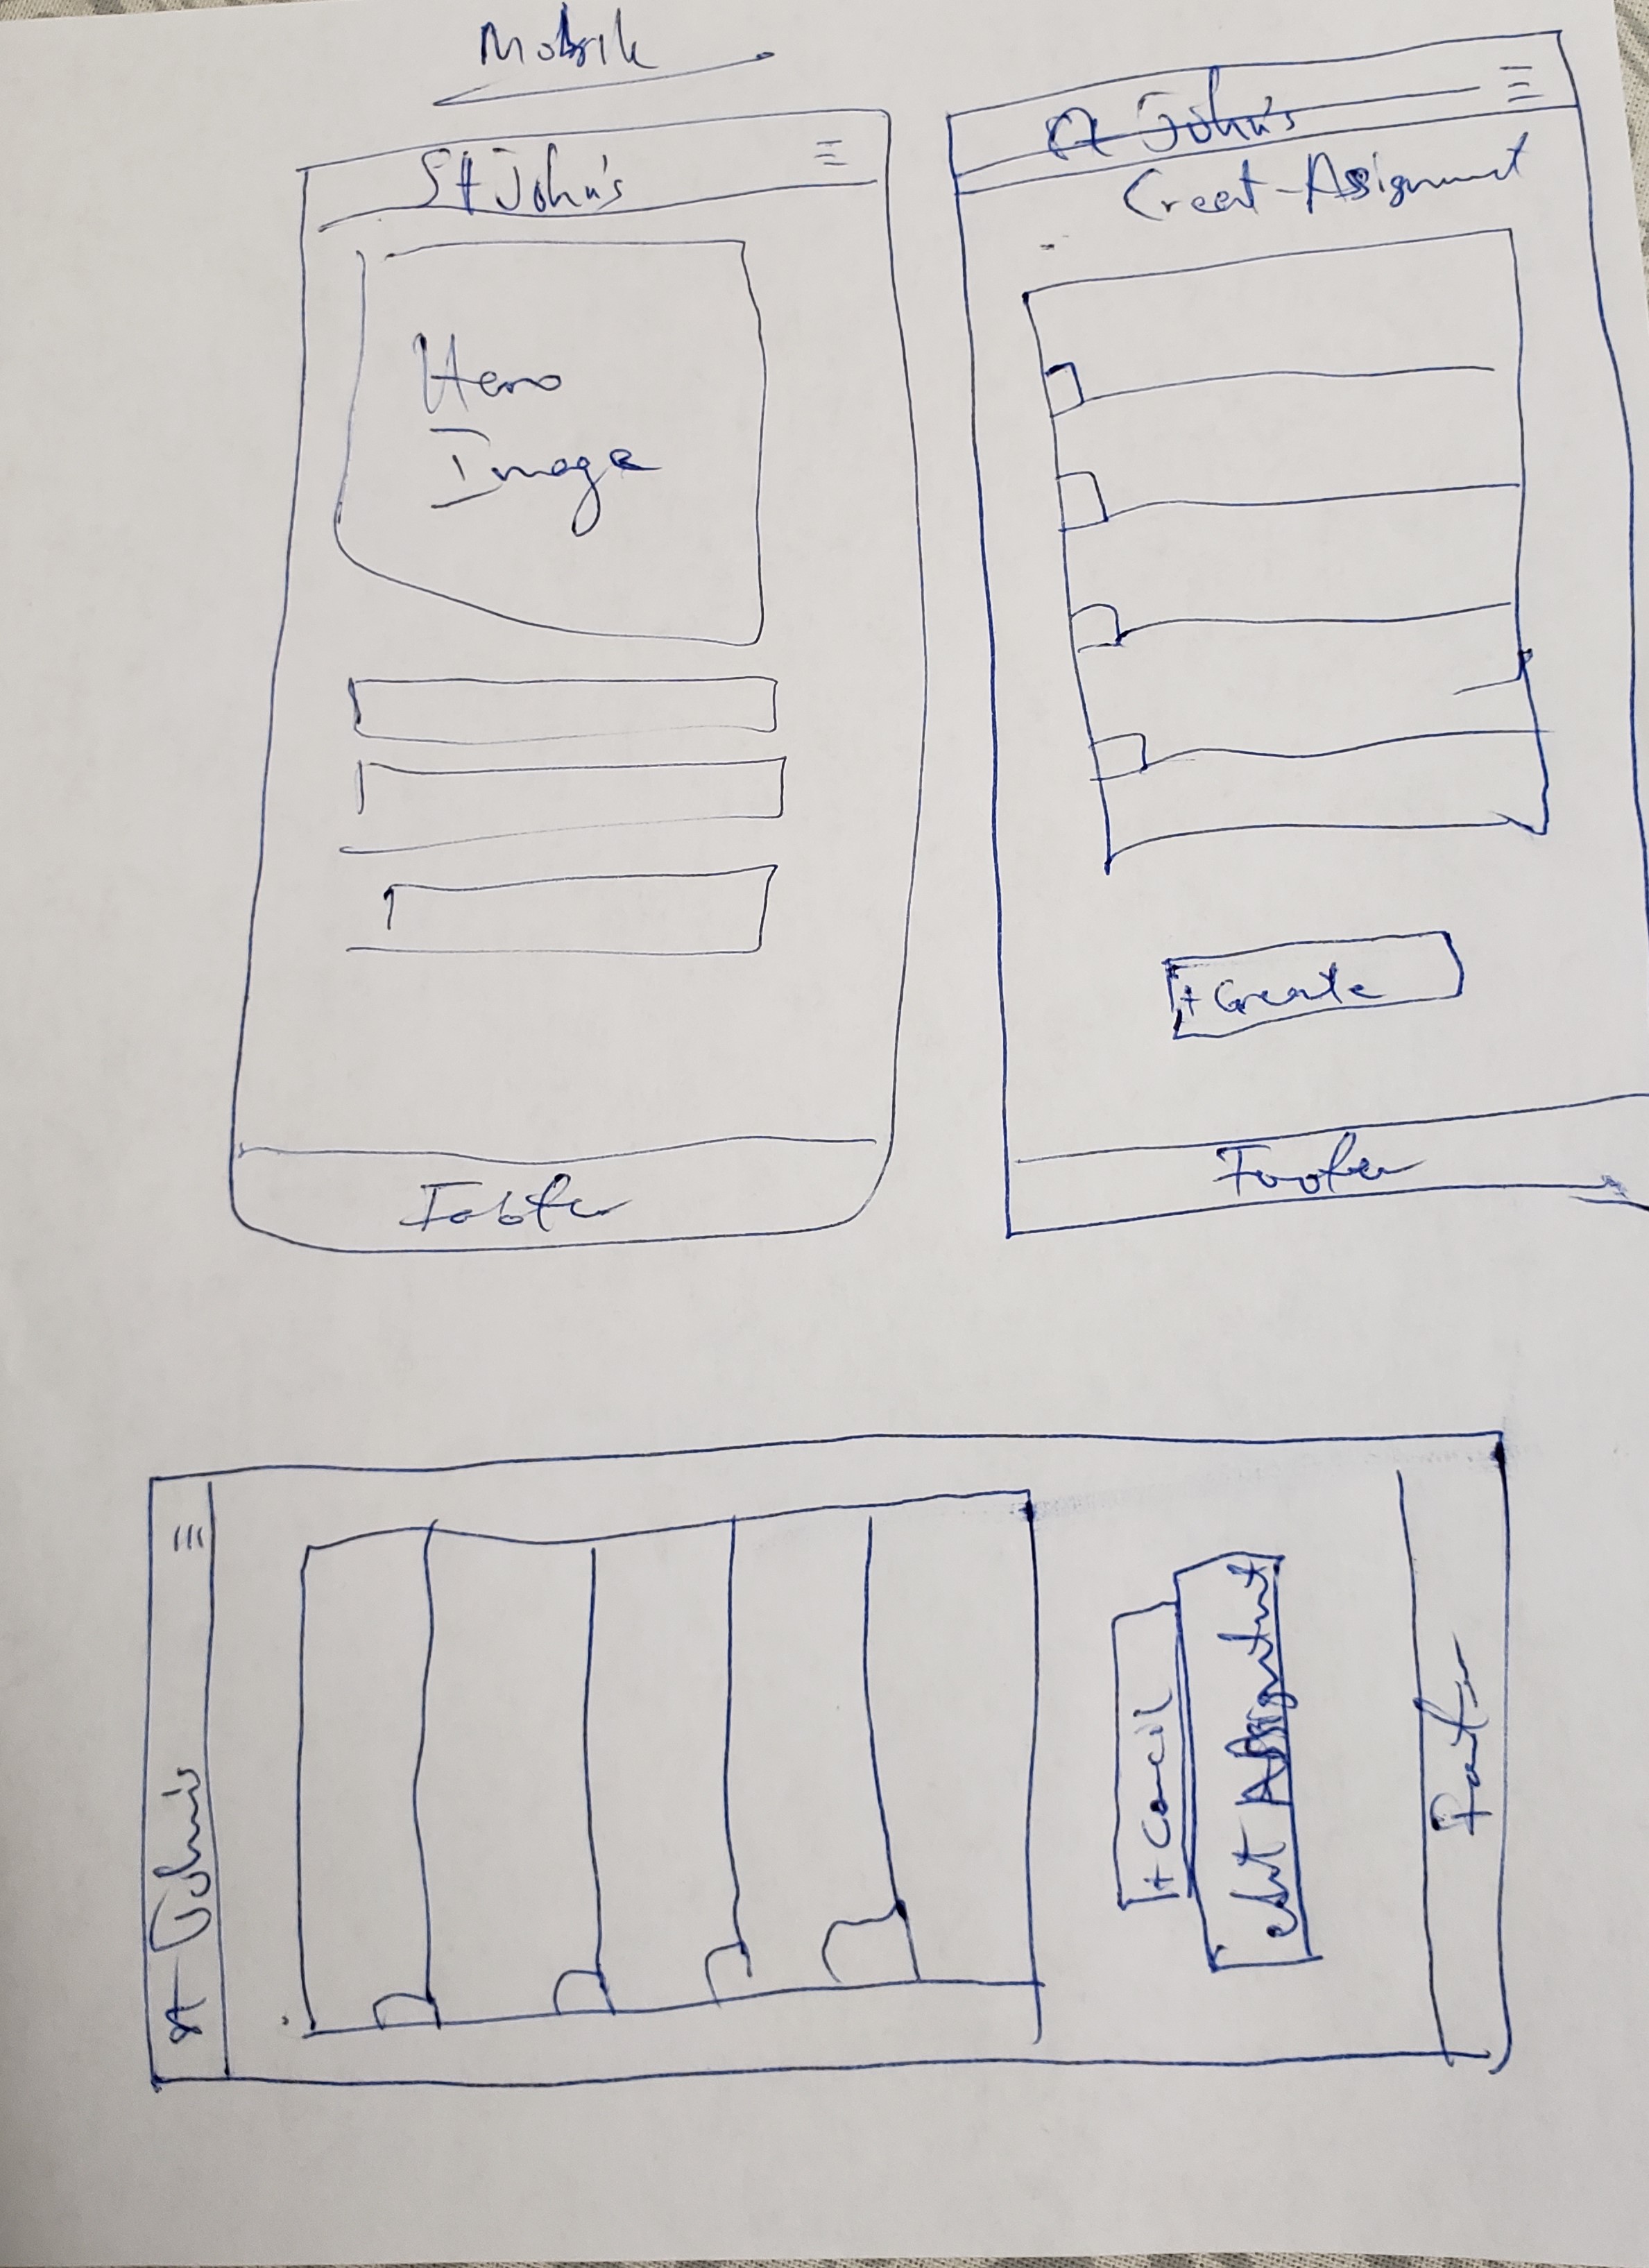 Mobile
St John's
Hero
Image
Footer
St John's
Creat Assignment
+ Create
Footer
St John's
+ Concil
edit Assignment
Footer